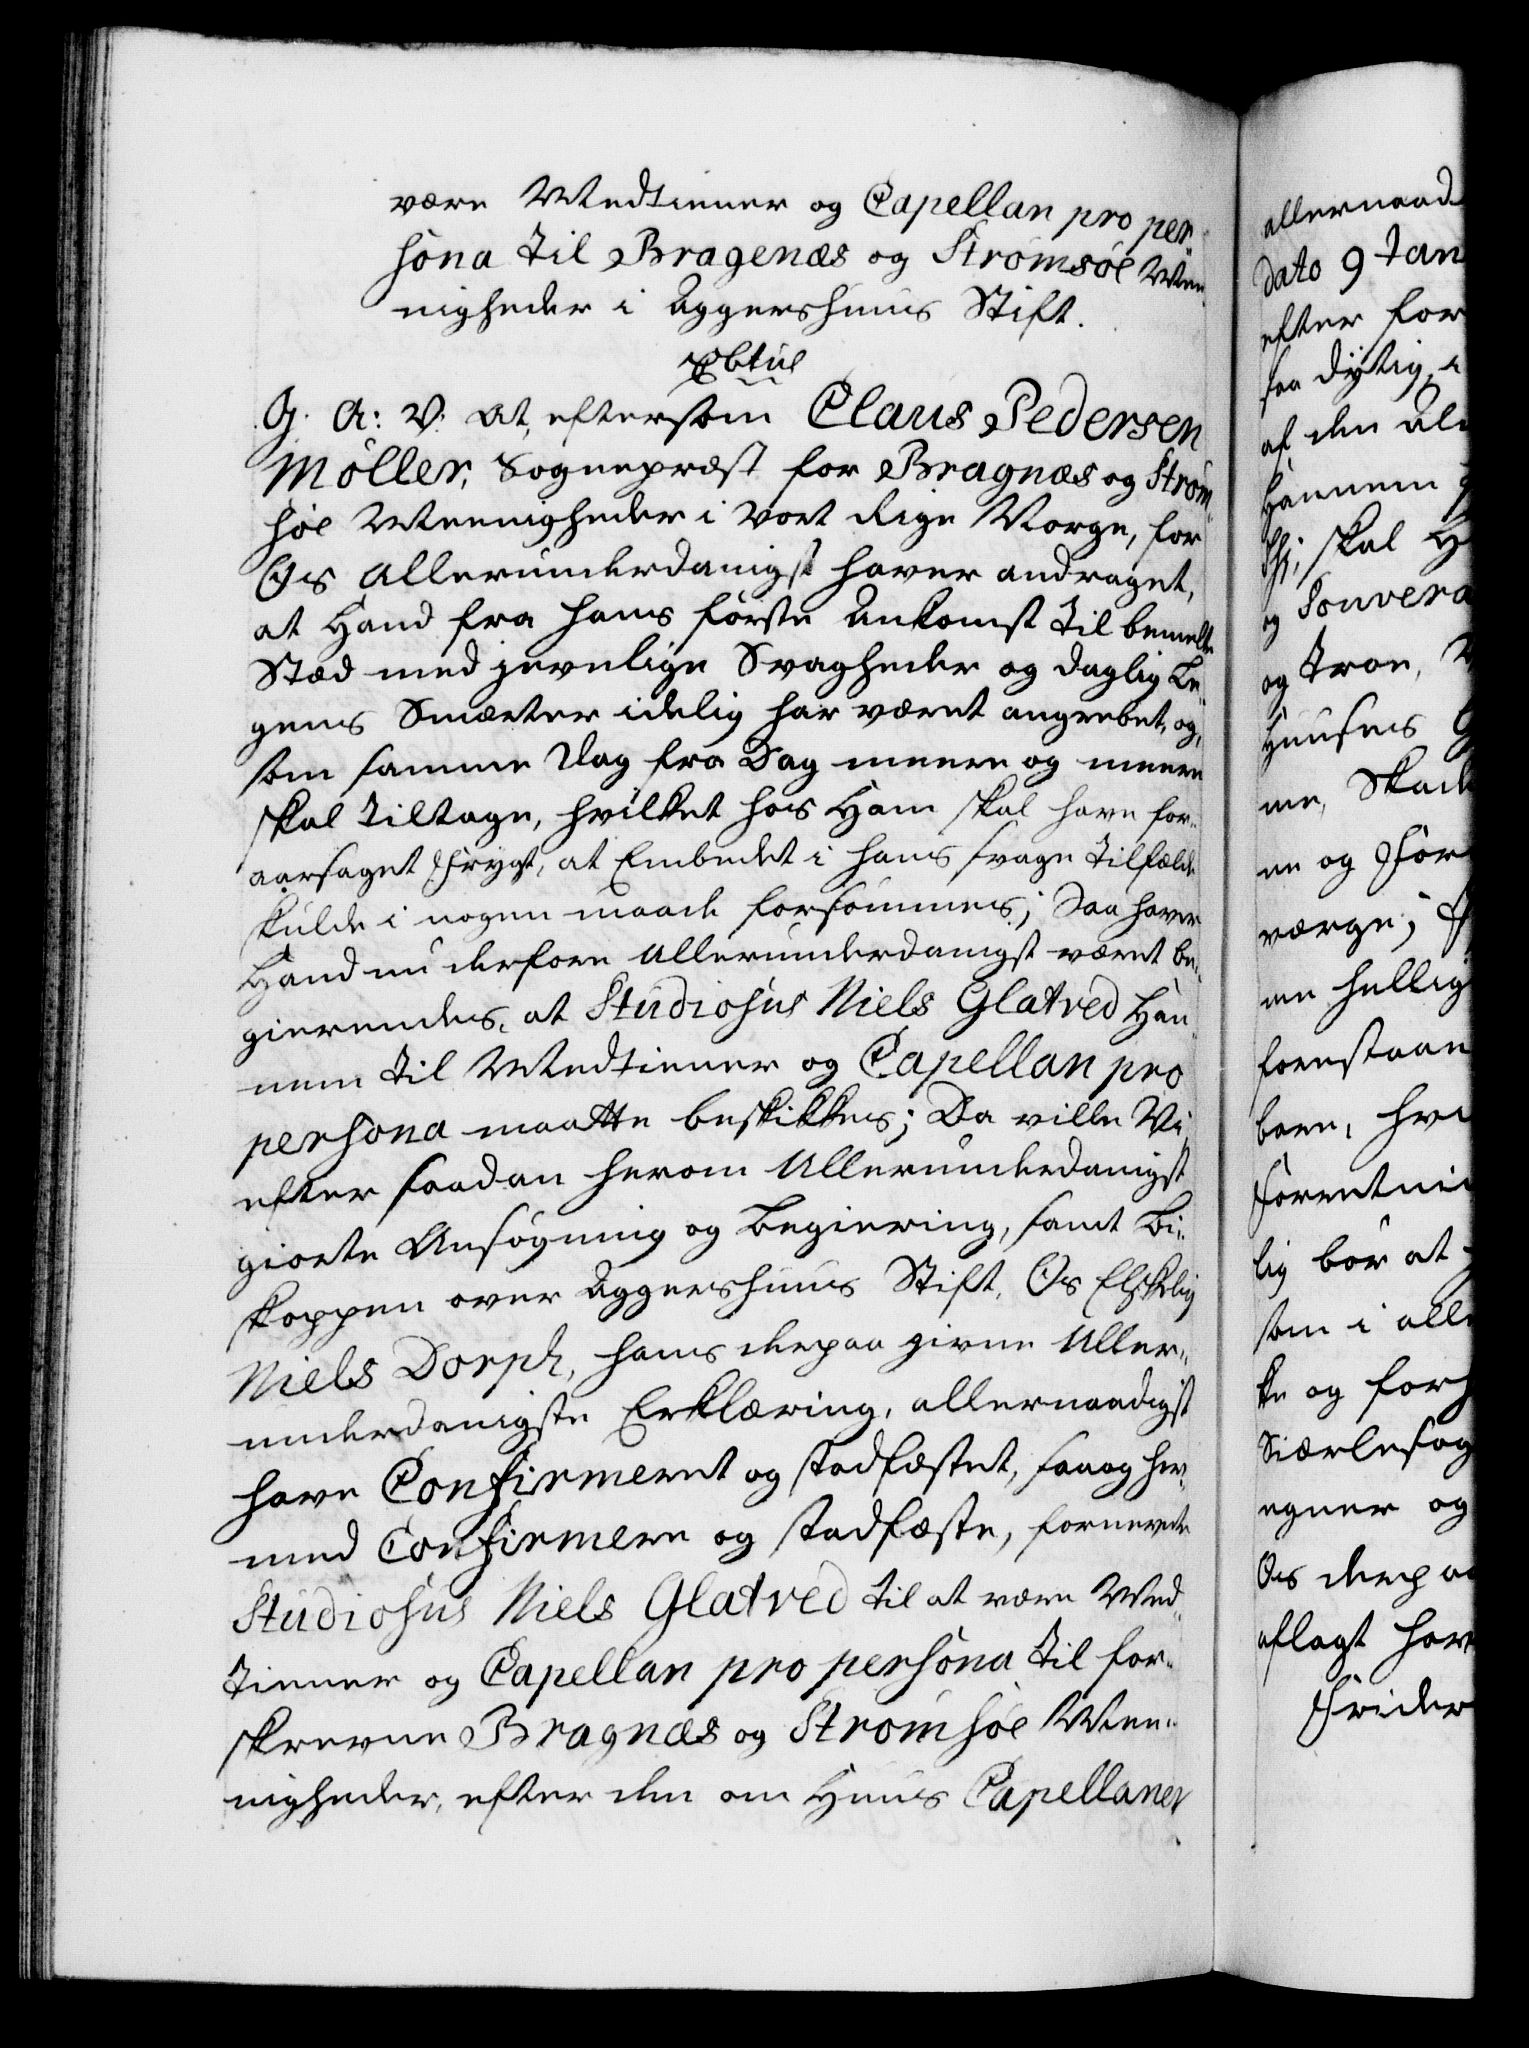 være Medtiener og Capellan pro per-
sona til Bragenæs og Strømsøe Mee-
nigheder i Aggershuus Stift.
G. A: V. at, eftersom Claus Pedersen
Møller, Sognepræst for Bragnæs og Strøm-
søe Meenigheder i Vort Rige Norge, for
Os allerunderdanigst haver andraget,
at Hand fra hans første Ankomst til bemelte
Stæd med jevnlige Svagheder og daglig Le-
gems Smerter idelig har været angrebet, og,
som samme Dag fra Dag meere og meere
skal tiltage, hvilket hos Ham skal have for-
aarsaget Frygt, at Embedet i hans svage Tilfælde
skulde i nogen maade forsømmes; Saa haver
Hand nu derfore Allerunderdanigst været be-
gierendes, at Studiosus Niels Glatved Han-
nem til Medtiener og Capellan pro
persona maatte beskikkes; Da ville Vi
efter saadan herom Allerunderdanigst
giorte Ansøgning og Begiering, samt Bi-
skoppen over Aggershuus Stift, Os Elskelig
Niels Dorph, hans derpaa givne Aller-
underdanigste Erklæring, allernaadigst
have Confirmeret og stadfæstet, saa og her-
med Confirmere og stadfæste, fornevnte
Studiosus Niels Glatved til at være Med-
tiener og Capellan pro persona til for-
skrevne Bragnæs og Strømsøe Mee-
nigheder, efter den om Huus Capellaner
allernaad
dato 9 Jan
efter for
saa dygtig
af den
Hannem
skal H
og Souvera
og Troe,
Huuses
me, Skade
ne og For
værge;
me hellig
forestaae
bære, hvi
Forretni
lig bør at
som i alle
ke og forh
Siælesørg
egner og
Os derpaa
aflagt hav
Frider